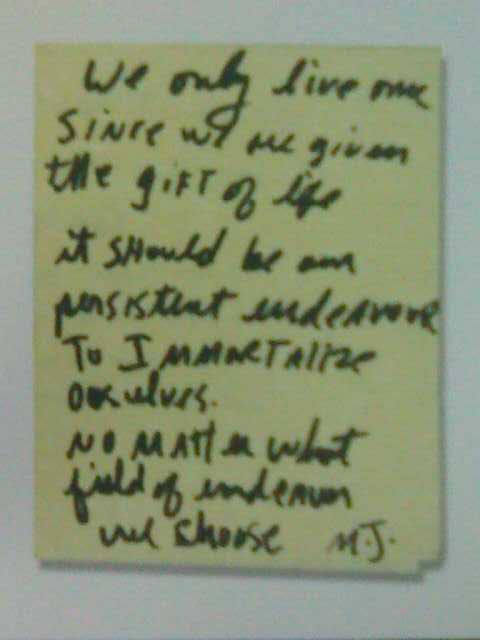 We only live once
Since we are given
the gift of life
it should be our
persistent endeavour
To Immortalize
ourselves.
no matter what
field of endeavor
we choose M.J.